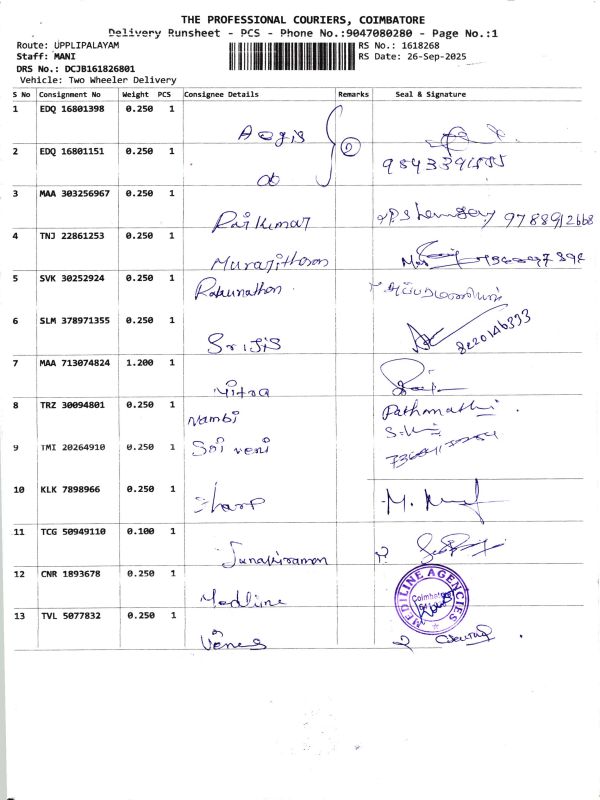 THE PROFESSIONAL COURIERS, COIMBATORE
Delivery Runsheet - PCS - Phone No.:9047080280 - Page No.:1
Route: UPPLIPALAYAM RS No.: 1618268
Staff: MANI RS Date: 26-Sep-2025
DRS No.: DCJB161826801
Vehicle: Two Wheeler Delivery
S No Consignment No Weight PCS Consignee Details Remarks Seal & Signature
1 EDQ 16801398 0.250 1 Aegis
2 EDQ 16801151 0.250 1 do
3 MAA 303256967 0.250 1 Raikumar 9788912668
4 TNJ 22861253 0.250 1
5 SVK 30252924 0.250 1
6 SLM 378971355 0.250 1 Srijis
7 MAA 713074824 1.200 1 Mitra
8 TRZ 30094801 0.250 1 Nambi
9 TMI 20264910 0.250 1 Sri veni
10 KLK 7898966 0.250 1 Sharp
11 TCG 50949110 0.100 1
12 CNR 1893678 0.250 1 Medline MEDILINE AGENCIES Coimbatore
13 TVL 5077832 0.250 1